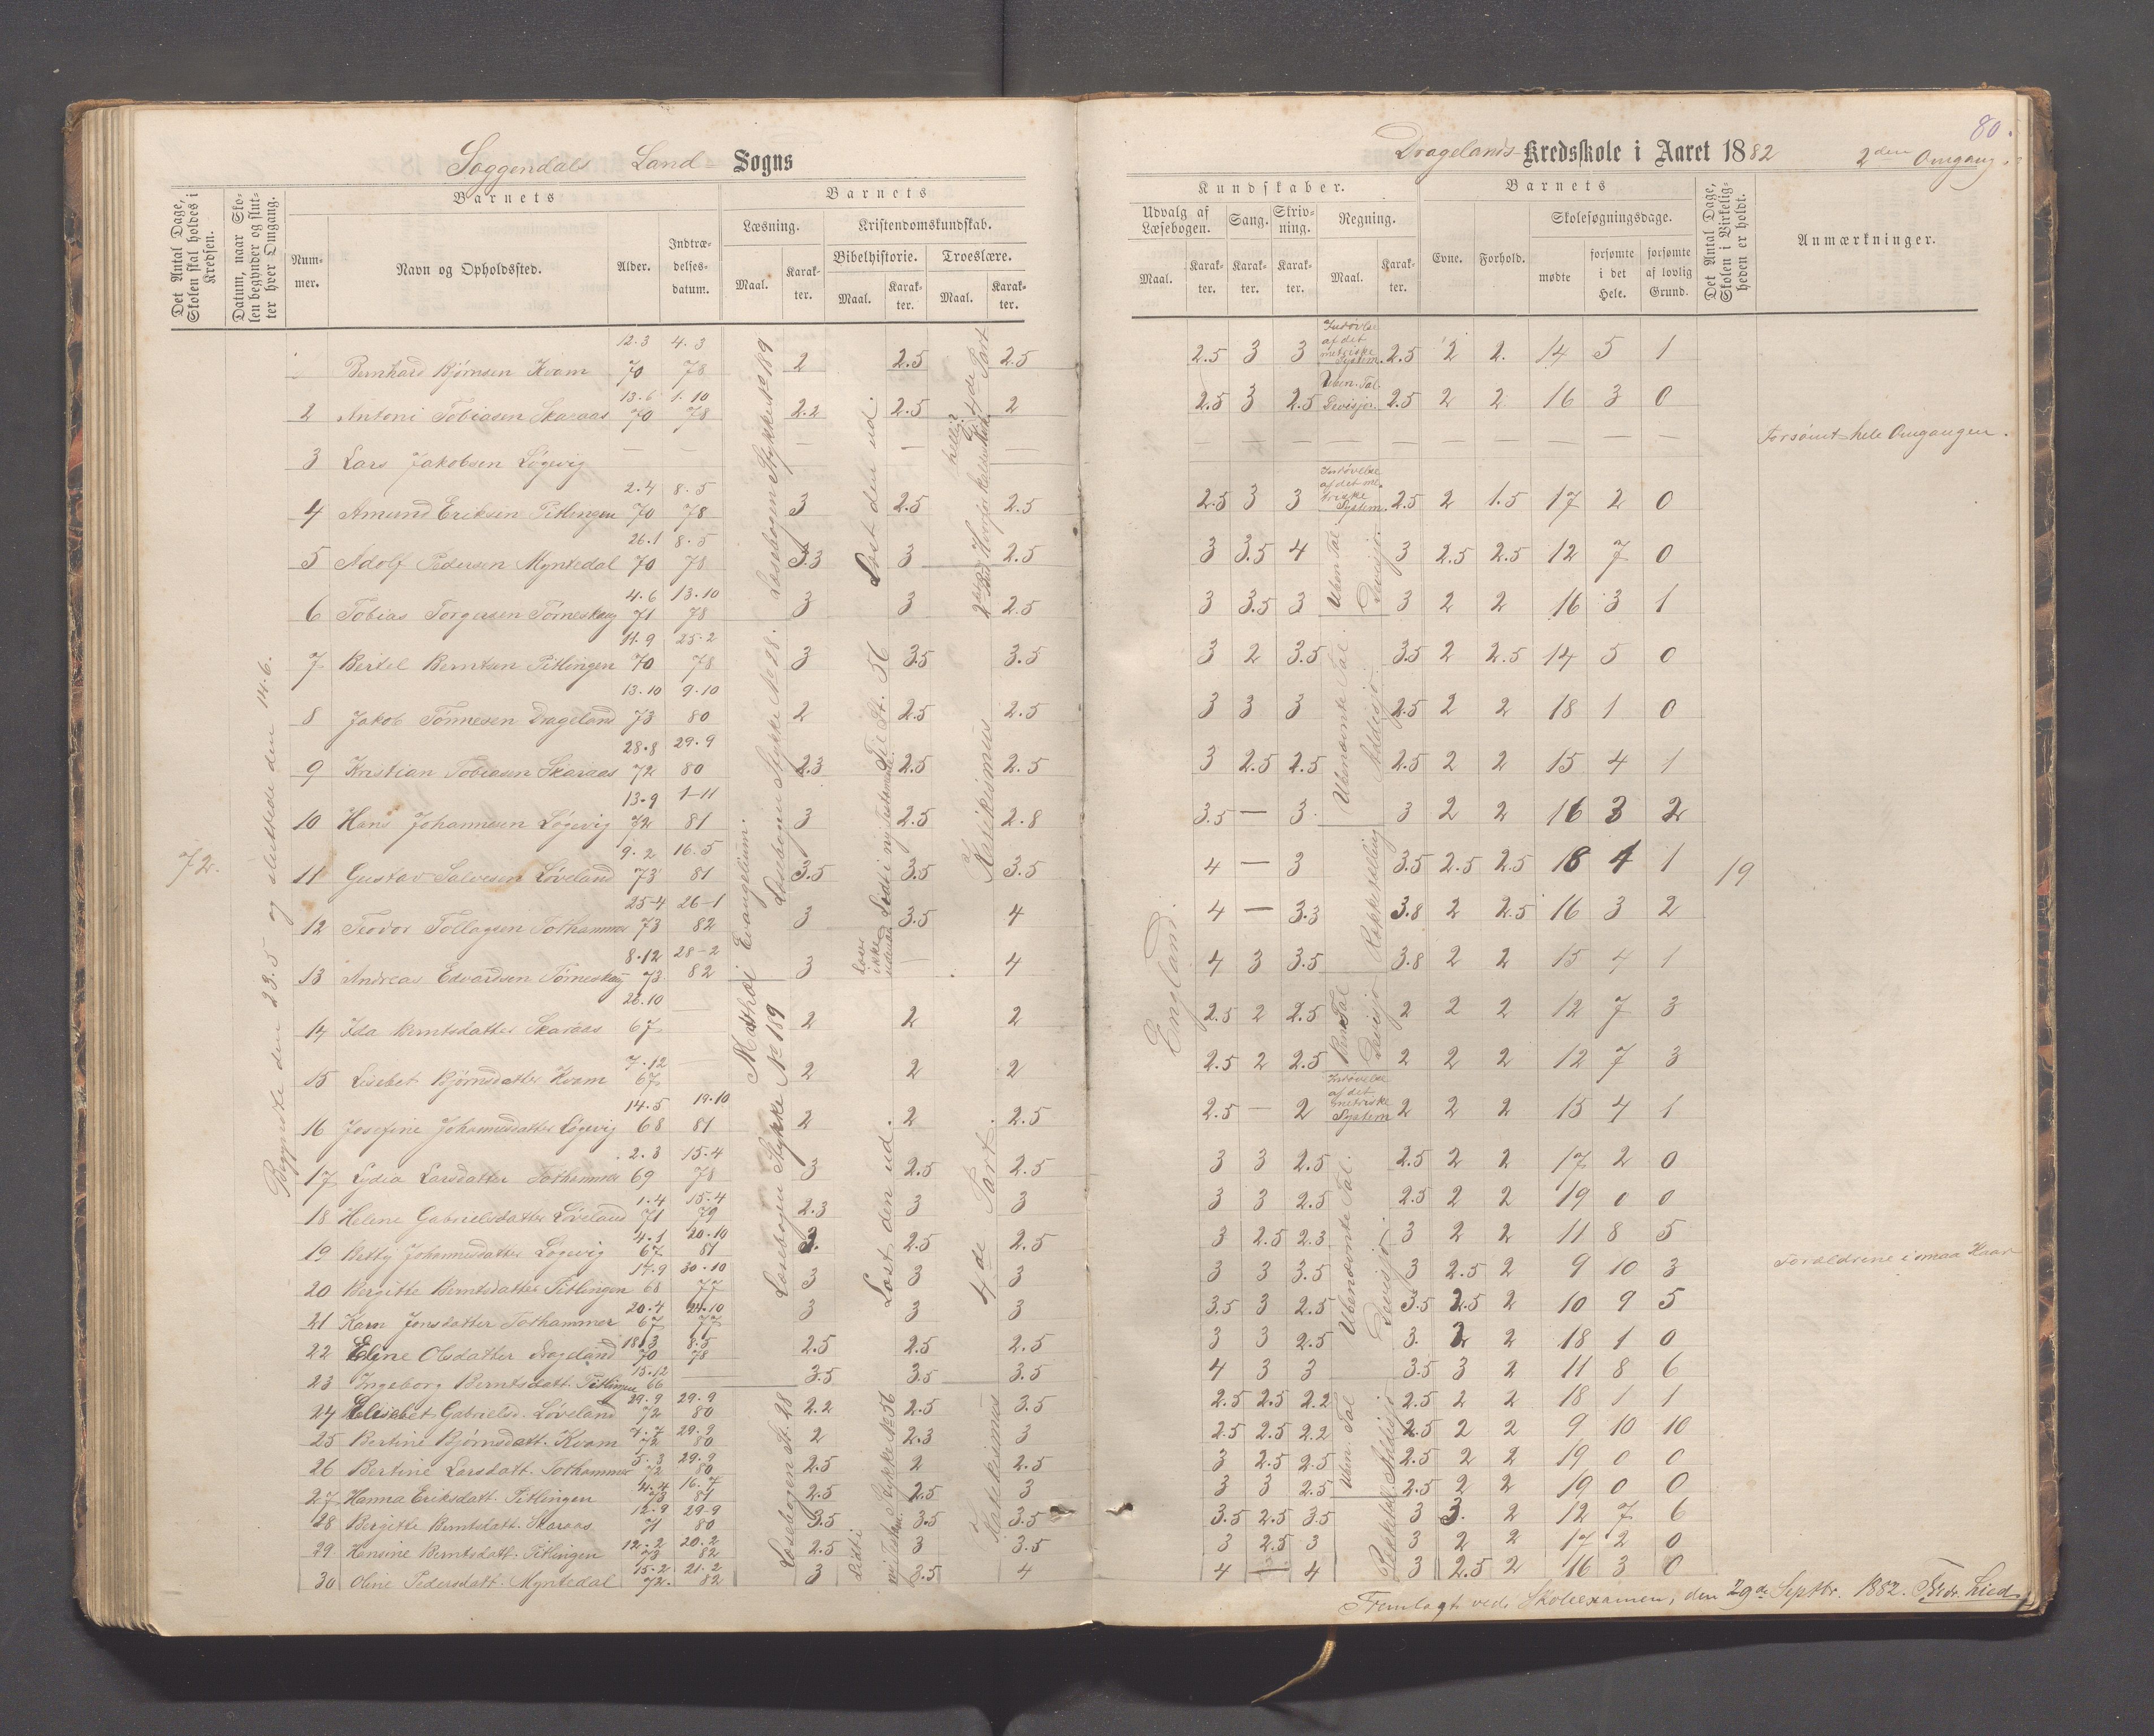 80.
Soggendals Land Sogns
Dragelands Kredsskole i Aaret 1882 2den Omgang.
Det Antal Dage, Skolen skal holdes i Kredsen.
Datum, naar Skolen begynder og slutter hver Omgang.
Barnets
Nummer.
Navn og Opholdssted.
Alder.
Indtrædelsesdatum.
Barnets
Læsning.
Maal.
Karakter.
Kristendomskundskab.
Bibelhistorie.
Maal.
Karakter.
Troeslære.
Maal.
Karakter.
Kundskaber.
Udvalg af Læsebogen.
Maal.
Karakter.
Sang.
Karakter.
Skrivning.
Karakter.
Regning.
Maal.
Karakter.
Barnets
Evne.
Forhold.
Skolesøgningsdage.
mødte
forsømte i det Hele.
forsømte af lovlig Grund.
Det Antal Dage, Skolen i Virkeligheden er holdt.
Anmærkninger.
72.
Begyndte den 23.5 og sluttede den 14.6.
Bernhard Bjørnsen Kvam 12.3 70 4.3 78 2 2.5 2.5 2.5 3 3 2.5 2 2. 14 5 1
2 Antoni Tobiasen Skaraas 13.6 70 1.10 78 2.2 2.5 2 2.5 3 2.5 2.5 2 2 16 3 0
3 Lars Jakobsen Løgevig — — — — — — — — — — — — — — Forsømt hele Omgangen.
4 Amund Eriksen Pitlingen 2.4 70 8.5 78 3 2.5 2.5 2.5 3 3 2.5 2 1.5 17 2 0
5 Adolf Pedersen Myntedal 26.1 70 8.5 78 3.3 3 2.5 3 3.5 4 3 2.5 2.5 12 7 0
6 Tobias Torgersen Tørneskog 4.6 71 13.10 78 3 3 2.5 3 3.5 3 3 2 2 16 3 1
7 Bertel Berntsen Pitlingen 14.9 70 25.2 78 3 3.5 3.5 3 2 3.5 3.5 2 2.5 14 5 0
8 Jakob Tønnesen Drageland 13.10 73 9.10 80 2 2.5 2.5 3 3 3 2.5 2 2 18 1 0
9 Kristian Tobiasen Skaraas 28.8 72 29.9 80 2.3 2.5 2.5 3 2.5 2.5 2.5 2 2 15 4 1
10 Hans Johannesen Løgevig 13.9 72 1-11 81 3 2.5 2.8 3.5 — 3 3 2 2 16 3 2
11 Gustav Salvesen Løveland 9.2 73 16.5 81 3.5 3.5 3.5 4 — 3 3.5 2.5 2.5 18 4 1 19
12 Teodor Tollagsen Tothammer 25-4 73 26-1 82 3 3.5 4 4 — 3.3 3.8 2 2.5 16 3 2
13 Andreas Edvardsen Tørneskog 8.12 73 28-2 82 3 — 4 4 3 3.5 3.8 2 2 15 4 1
14 Ida Berntsdatter Skaraas 26.10 67 — 2 2 2 2.5 2 2.5 2 2 2 12 7 3
15 Lisebet Bjørnsdatter Kvam 7.12 67 — 2 2 2 2.5 2 2.5 2 2 2 12 7 3
16 Josefine Johannesdatter Løgevig 14.5 68 19.10 81 2 2 2.5 2.5 — 2 2 2 2 15 4 1
17 Lydia Larsdatter Tothammer 2.3 69 15.4 78 3 2.5 2.5 3 3 2.5 2.5 2 2 17 2 0
18 Helene Gabrielsdatter Løveland 1.4 71 15.4 79 2.3 3 3 3 3 2.5 2.5 2 2 19 0 0
19 Betty Johannesdatter Løgevig 4.1 67 20.10 81 2. 2.5 2.5 3 2.5 2.3 3 2 2 11 8 5
20 Bergitte Berntsdatter Pitlingen 17.9 68 30.10 77 3 3 3 3 3 3.5 3 2.5 2 9 10 3 Forældrene i smaa Kaar
21 Karn Jensdatter Tothammer 20.4 67 24.10 77 3 3 3 3.5 3 2.5 3.5 2.5 2 10 9 5
22 Eline Olsdatter Drageland 18.3 70 8.5 78 2.5 2.5 2.5 3 3 2.5 3. 2 2 18 1 0
23 Ingeborg Berntsdatt. Pitlingen 15.12 66 — 3.5 3.5 3.5 4 3 3 3.5 3 2 11 8 6
24 Elisebet Gabrielsd. Løveland 29.9 72 29.9 80 2.2 2.5 3.5 2.5 2.5 2.2 2.5 2 2 18 1 1
25 Bertine Bjørnsdatt. Kvam 7.7 72 29.9 80 2 2.3 3 2.5 2.5 2.2 2.5 2 2 9 10 10
26 Bertine Larsdatt. Tothammer 5.3 72 29.9 80 2.5 2 2.5 3 2.5 2.5 2.5 2 2 19 0 0
27 Hanna Eriksdatt. Pitlingen 4.4 73 16.7 81 2.5 2.5 3 3 3 2.5 2.5 2 2 19 0 0
28 Bergitte Berntsdatt. Skaraas 12.9 71 29-9 80 3.5 3.5 3.5 3.5 2.5 3.5 3 3. 2 12 7 6
29 Hansine Berntsdatt. Pitlingen 12.2 73 20.2 82 2.5 3 3.5 3 2.5 3 3 2 2 17 2 0
30 Oline Pedersdatt. Myntedal 15.2 72. 21.2 82 3 3.5 4 4 — 4 3 2.5 2 16 3 0
Læsebogen Stykke No 189
Læsebogen Stykke No 28.
Mathæi Evangelium.
Læsebogen Stykke No 189
Læsebogen St. 28
Læst den ud.
Til St. 56
Lidt i ny Testamente.
Læser ikke udenad
Læst den ud
Stykke No 56
Lidt i
ny Testm.
4de Part
Katekismus
4de Part.
Katekismus
England.
Indøvelse af det metriske System.
Uben. Tal. Devisjon.
Indøvelse af det metriske System.
Uben Tal Devisjo.
Ubenævnte Tal. Addisjo.
Rækketælling
Ben Tal Devisjo
Indøvelse af det metriske System
Ubenævnte Tal. Devisjo.
Uben. Tal Addisjo
Fremlagt ved Skoleexamen, den 29de Septbr. 1882. Fredr. Lied